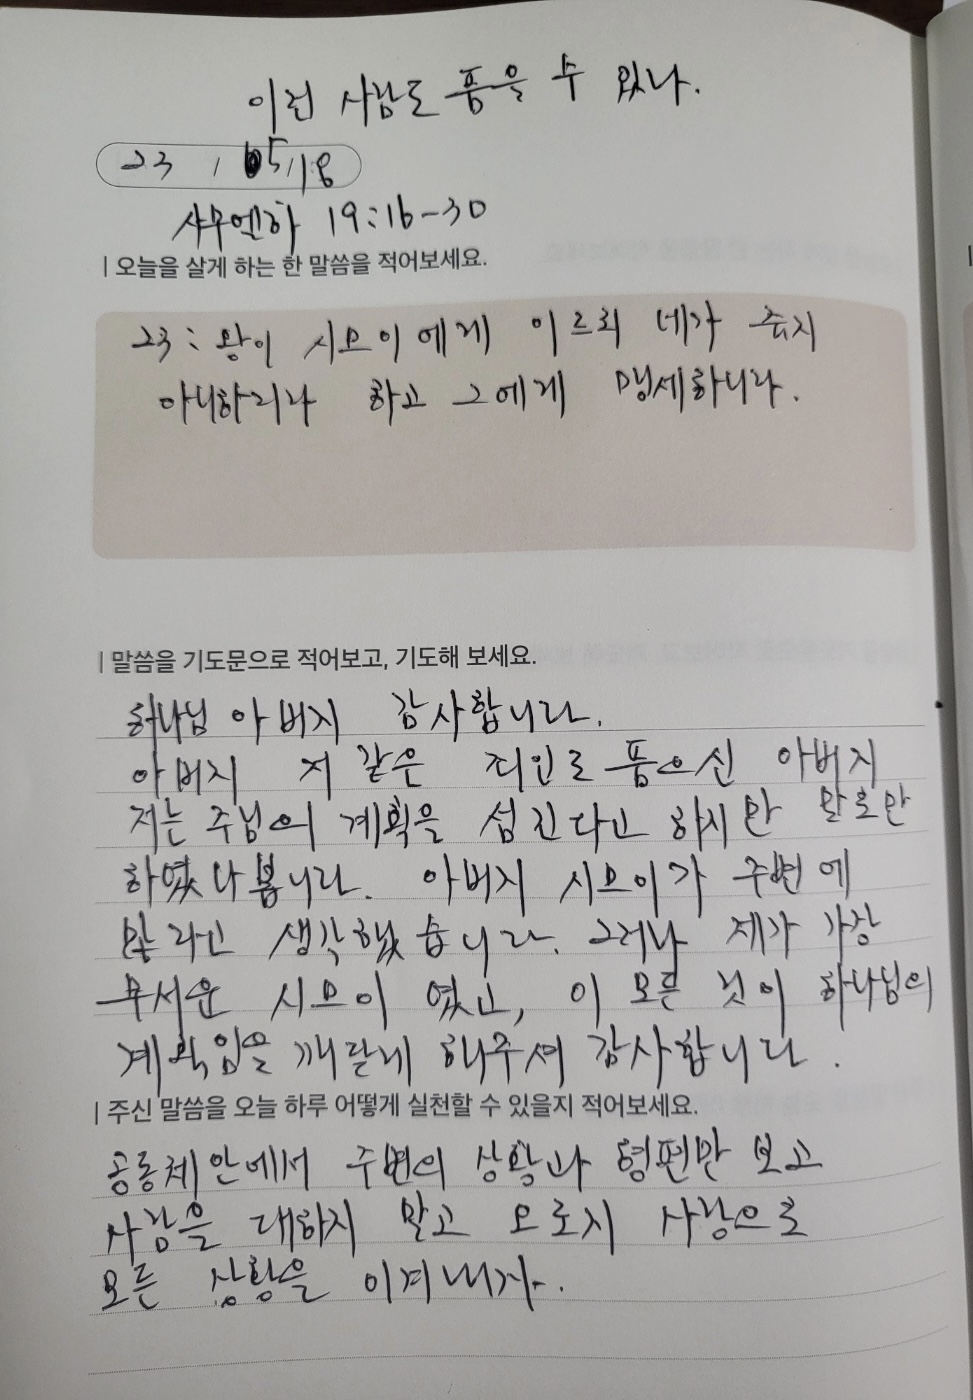 이런 사람도 품을 수 있나.
23 / 05/18
사무엘하 19:16-30
| 오늘을 살게 하는 한 말씀을 적어보세요.
23: 왕이 시므이에게 이르되 네가 죽지
아니하리라 하고 그에게 맹세하니라.
| 말씀을 기도문으로 적어보고, 기도해 보세요.
하나님 아버지 감사합니다.
아버지 저 같은 죄인도 품으신 아버지
저는 주님의 계획을 섬긴다고 하지만 말로만
하였나 봅니다. 아버지 시므이가 주변에
많다고 생각했습니다. 그러나 제가 가장
무서운 시므이 였고, 이 모든 것이 하나님의
계획임을 깨닫게 해주셔 감사합니다.
| 주신 말씀을 오늘 하루 어떻게 실천할 수 있을지 적어보세요.
공동체 안에서 주변의 상황과 형편만 보고
사람을 대하지 말고 오로지 사랑으로
모든 상황을 이겨내자.